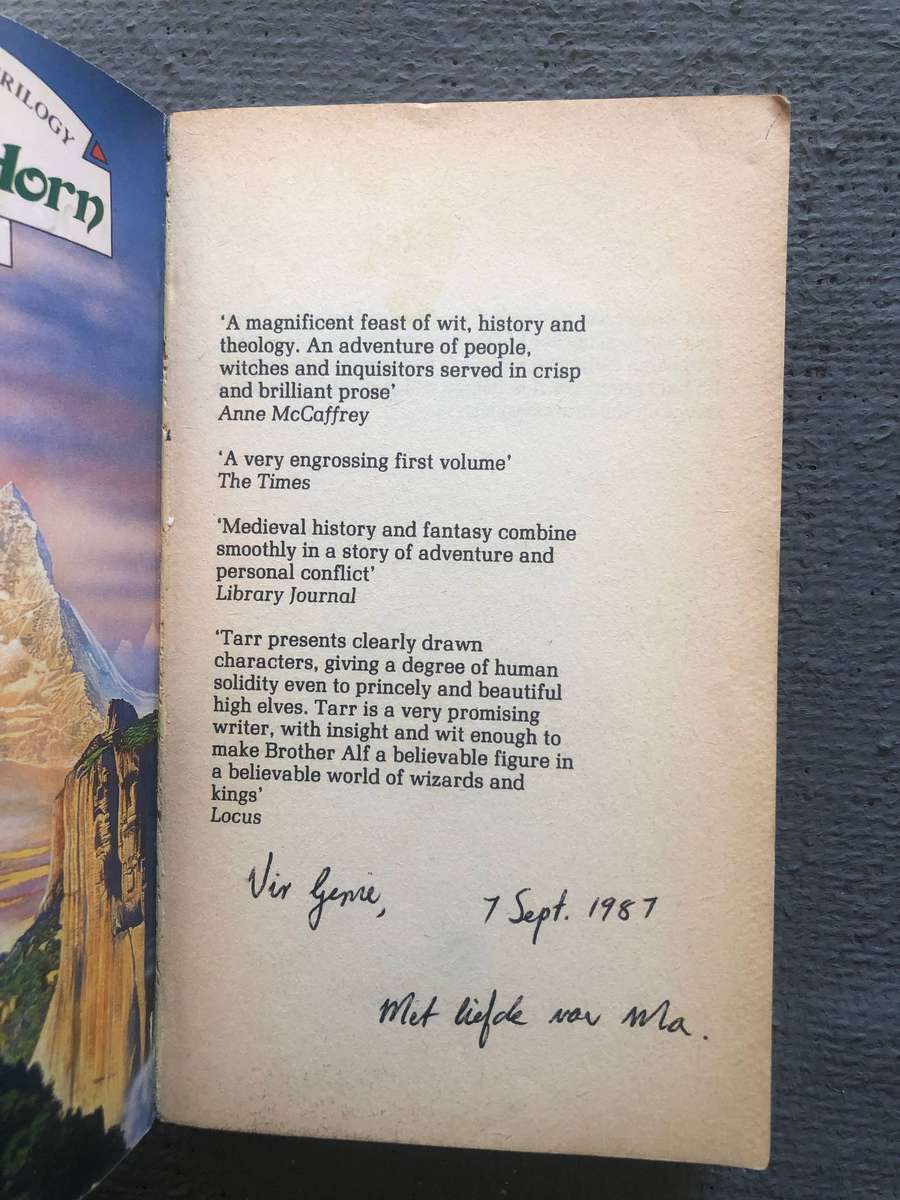 RILOGY
Horn
‘A magnificent feast of wit, history and
theology. An adventure of people,
witches and inquisitors served in crisp
and brilliant prose’
Anne McCaffrey
‘A very engrossing first volume’
The Times
‘Medieval history and fantasy combine
smoothly in a story of adventure and
personal conflict’
Library Journal
‘Tarr presents clearly drawn
characters, giving a degree of human
solidity even to princely and beautiful
high elves. Tarr is a very promising
writer, with insight and wit enough to
make Brother Alf a believable figure in
a believable world of wizards and
kings’
Locus
Vir 7 Sept. 1987
Met liefde van Ma.